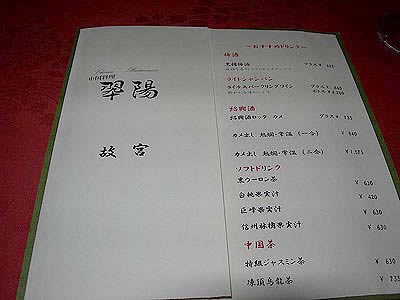 Chinese Restaurant
中国料理
翠陽
故宮
～おすすめドリンク～
梅酒
黒糖梅酒 グラス¥
ライトシャンパン
ライチスパークリングワイン グラス¥ 840
ボトル¥ 4,200
紹興酒
紹興酒ロック カメ グラス¥ 735
カメ出し 地燗・常温 (一合) ¥ 840
カメ出し 地燗・常温 (二合) ¥1,575
ソフトドリンク
黒ウーロン茶 ¥ 630
白桃果実汁 ¥ 420
巨峰果実汁 ¥ 630
信州林檎果実汁 ¥ 630
中国茶
特級ジャスミン茶 ¥ 630
凍頂烏龍茶 ¥ 735